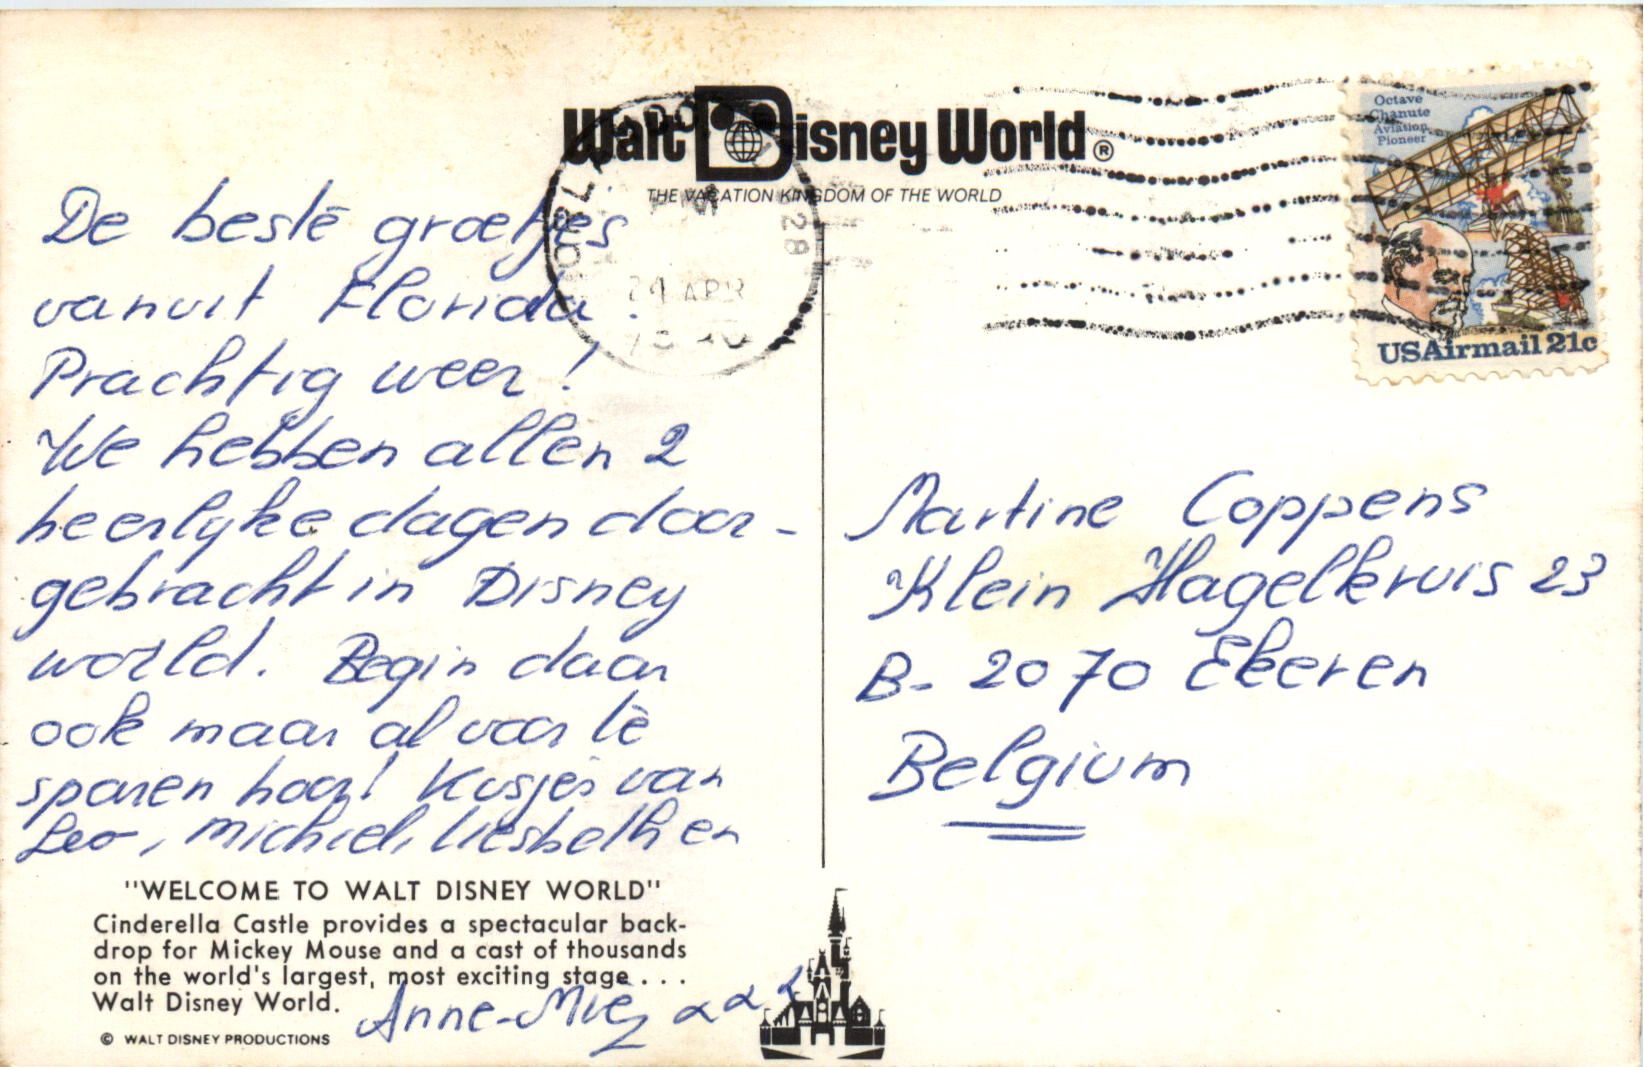 Walt Disney World®
THE VACATION KINGDOM OF THE WORLD
Octave
Chanute
Aviation
Pioneer
USAirmail 21c
ORLANDO
PM
28
24 APR
De beste groetjes
vanuit Florida!
Prachtig weer!
We hebben allen 2
heerlyke dagen door-
gebracht in Disney
world. Begin daar
ook maar al voor te
sparen hoor! Kusjes van
Leo, Michiel, Liesbeth en
Anne-Mie
Martine Coppens
Klein Hagelkruis 23
B- 2070 Ekeren
Belgium
"WELCOME TO WALT DISNEY WORLD"
Cinderella Castle provides a spectacular back-
drop for Mickey Mouse and a cast of thousands
on the world's largest, most exciting stage . . .
Walt Disney World.
© WALT DISNEY PRODUCTIONS